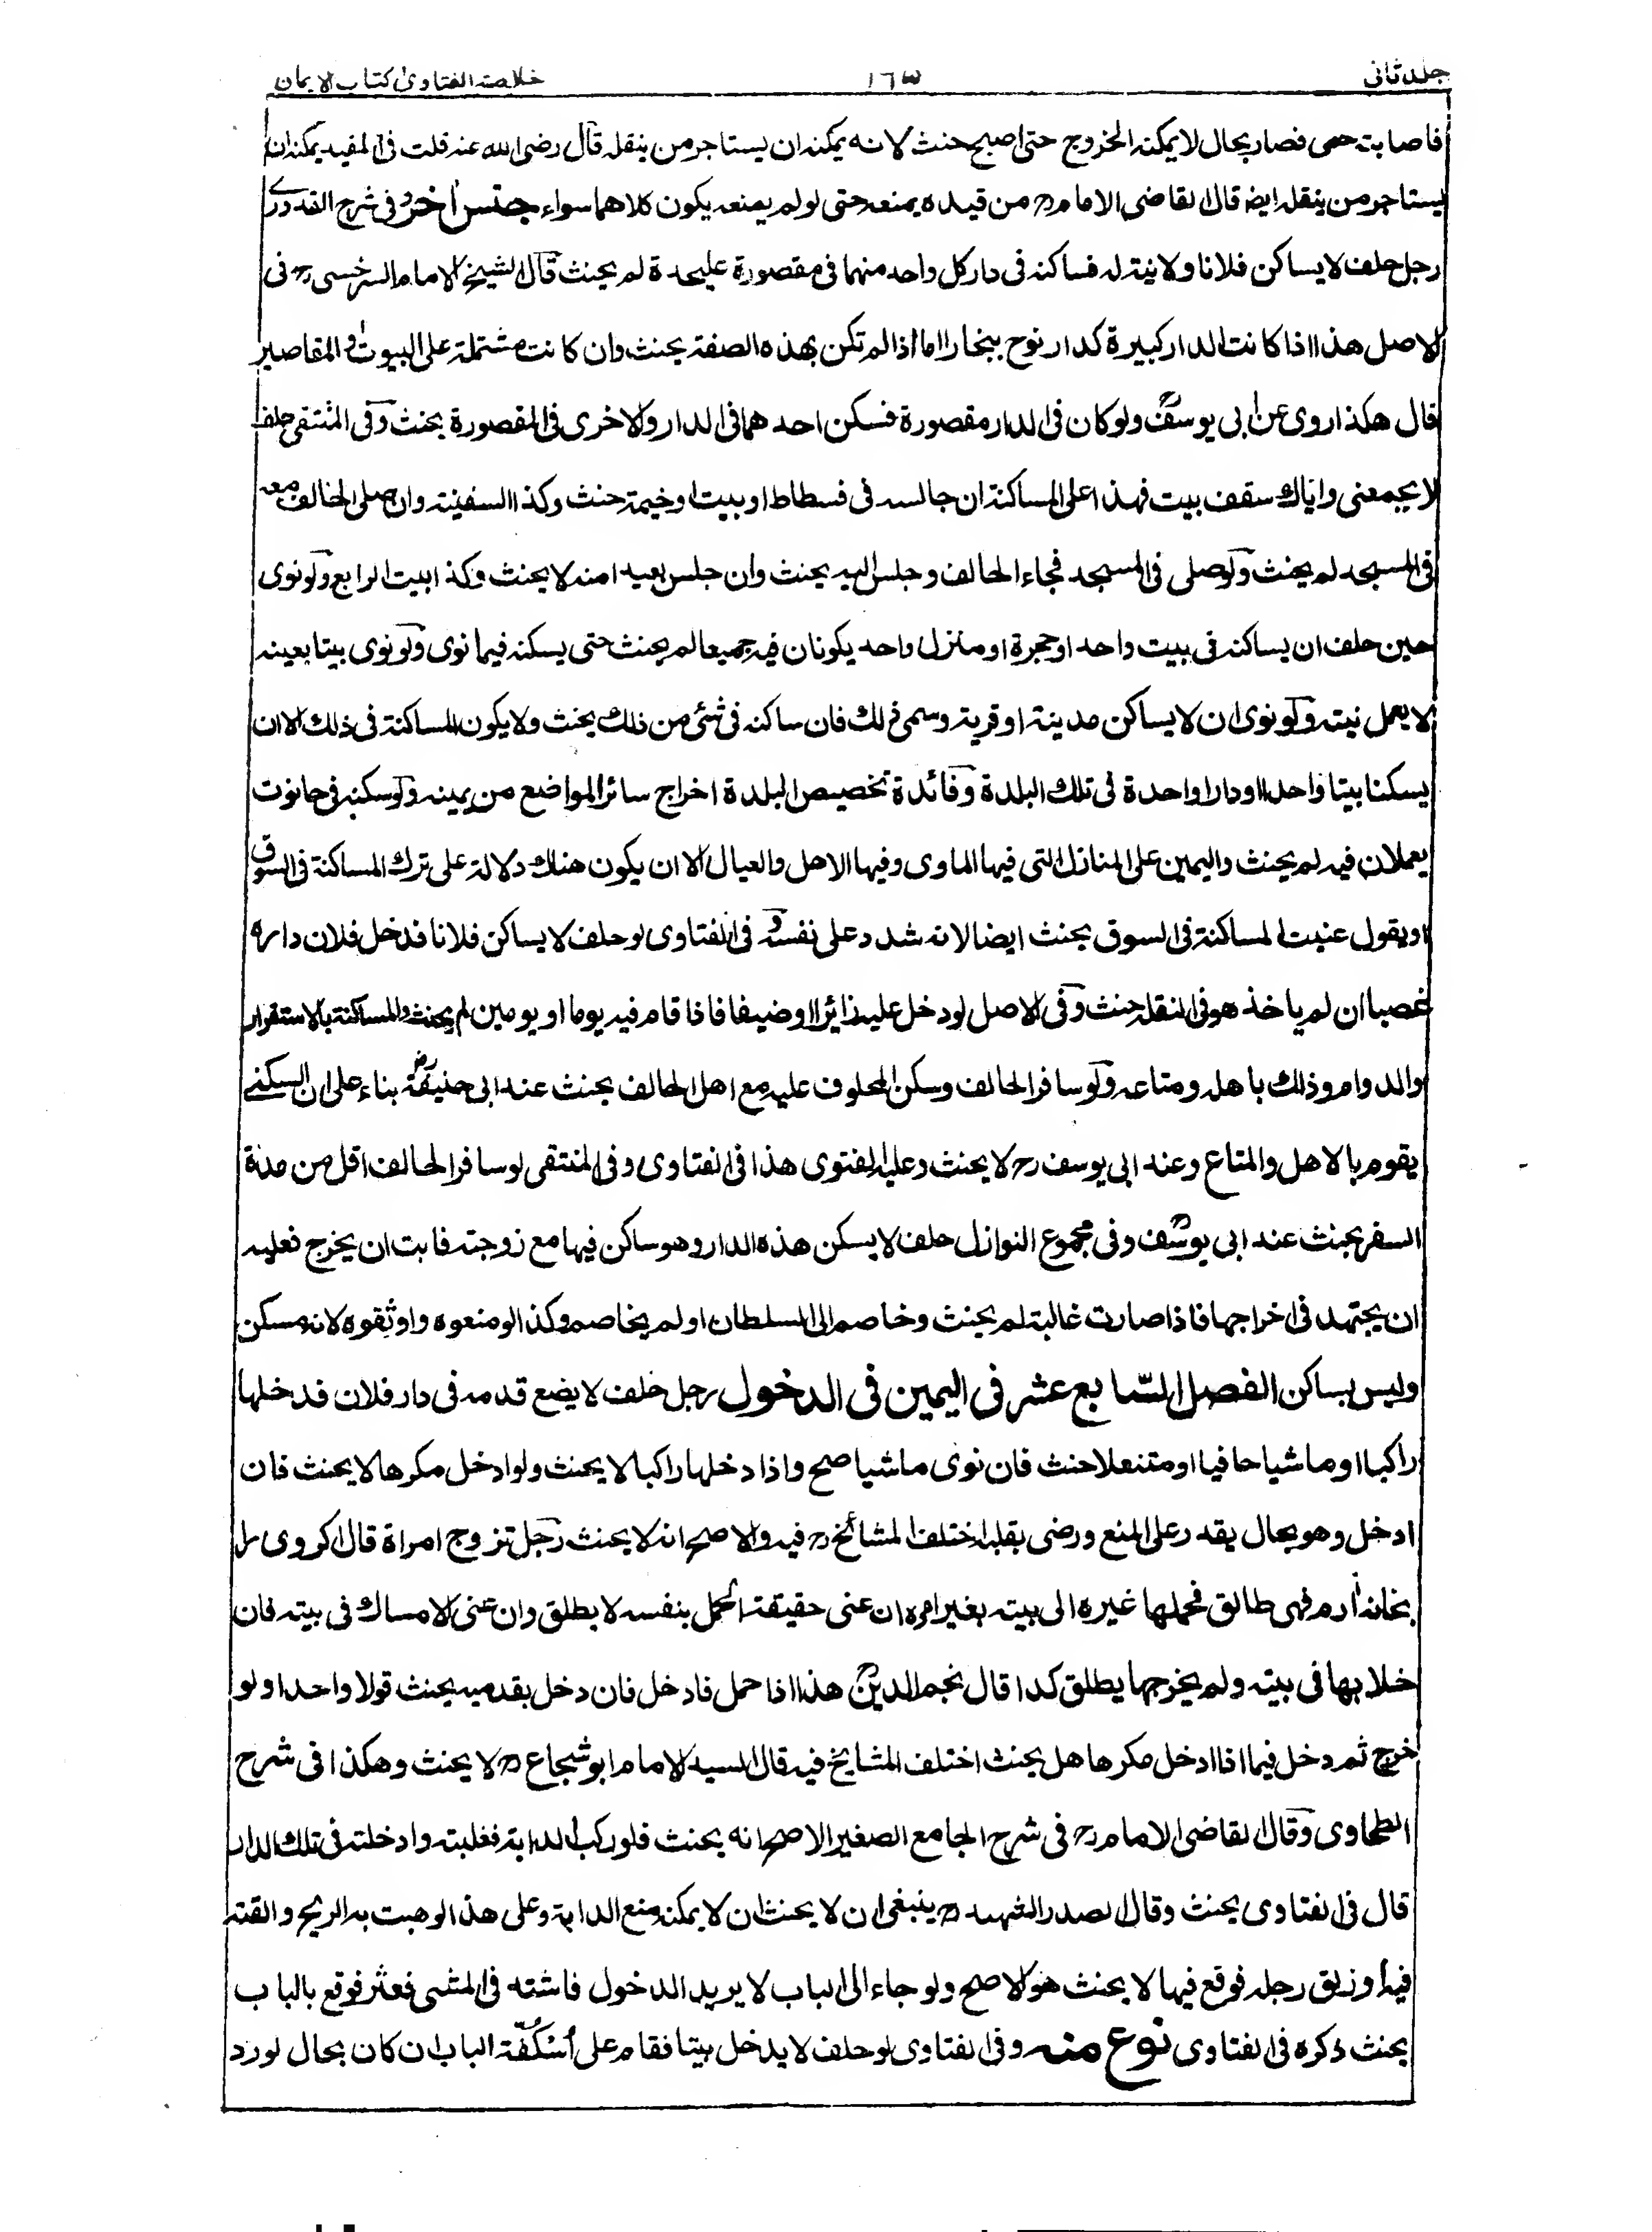 جلد ثانی
١٦٣
خلاصة الفتاوىٰ كتاب الايمان
فاصابته حمى فصار بحال لا يمكنه الخروج حتى اصبح حنث لانه يمكنه ان يستاجر من ينقله قال رضى الله عنه قلت فى المفيد يمكنه ان
يستاجر من ينقله ايضا قال القاضى الامام رح من قيده يمنعه حتى لو لم يمنعه يكون كلاهما سواء جنس أخر وفى شرح القدورى
رجل حلف لا يساكن فلانا ولا نية له فساكنه فى دار كل واحد منهما فى مقصورة عليحدة لم يحنث قال الشيخ الامام السرخسى رح فى
الاصل هذا اذا كانت الدار كبيرة كدار نوح ببخارا اما اذا لم تكن بهذه الصفة يحنث وان كانت مشتملة على البيوت والمقاصير
قال هكذا روى عن ابى يوسف رح ولو كان فى الدار مقصورة فسكن احدهما فى الدار والاخرى فى المقصورة يحنث وفى المنتقى حلف
لا يجمعنى واياك سقف بيت فهذا على المساكنة ان جالسه فى فسطاط او بيت او خيمة حنث وكذا السفينة وان صلى الحالف معه
فى المسجد لم يحنث ولو صلى فى المسجد فجاء الحالف وجلس اليه يحنث وان جلس بعيدا منه لا يحنث وكذا البيت الرابع ولو نوى
حين حلف ان يساكنه فى بيت واحد او حجرة او منزل واحد يكونان فيه جميعا لم يحنث حتى يسكنه فيما نوى ولو نوى بيتا بعينه
لا يعمل نيته ولو نوى ان لا يساكن مدينة او قرية وسمى ذلك فان ساكنه فى شئ من ذلك يحنث ولا يكون المساكنة فى ذلك الا ان
يسكنا بيتا واحدا او دارا واحدة فى تلك البلدة وفائدة تخصيص البلدة اخراج سائر المواضع من يمينه ولو سكنه فى حانوت
يعملان فيه لم يحنث واليمين على المنازل التى فيها الماوى وفيها الاهل والعيال الا ان يكون هناك دلالة على ترك المساكنة فى السوق
او يقول عنيت المساكنة فى السوق يحنث ايضا لانه شدد على نفسه و فى الفتاوى لو حلف لا يساكن فلانا فدخل فلان داره
غصبا ان لم ياخذ هو فى النقلة حنث وفى الاصل لو دخل عليه زائرا او ضيفا فاذا قام فيه يوما او يومين لم يحنث والمساكنة بالاستقرار
والدوام وذلك باهله ومتاعه ولو سافر الحالف وسكن المحلوف عليه مع اهل الحالف يحنث عند ابى حنيفة رض بناء على ان السكنى
يقوم بالاهل والمتاع وعند ابى يوسف رح لا يحنث وعليه الفتوى هذا فى الفتاوى وفى المنتقى لو سافر الحالف اقل من مدة
السفر يحنث عند ابى يوسف رح وفى مجموع النوازل حلف لا يسكن هذه الدار وهو ساكن فيها مع زوجته فابت ان يخرج فعليه
ان يجتهد فى اخراجها فاذا صارت غالبة لم يحنث وخاصم الى السلطان او لم يخاصم وكذا لو منعوه واوثقوه لانه مسكن
وليس بساكن الفصل السّابع عشر فى اليمين فى الدخول رجل حلف لا يضع قدمه فى دار فلان فدخلها
راكبا او ماشيا حافيا او متنعلا حنث فان نوى ماشيا صح واذا دخلها راكبا لا يحنث ولو ادخل مكرها لا يحنث فان
ادخل وهو بحال يقدر على المنع ورضى بقلبه اختلف المشائخ رح فيه والاصح انه لا يحنث رجل تزوج امراة قال اكر وى را
بخانه أرم فهى طالق فحملها غيره الى بيته بغير امره ان عنى حقيقة الحمل بنفسه لا يطلق وان عنى الامساك فى بيته فان
خلا بها فى بيته ولم يخرجها يطلق كذا قال نجم الدين رح هذا اذا حمل فادخل فان دخل بقدميه يحنث قولا واحدا ولو
خرج ثم دخل فيما اذا ادخل مكرها هل يحنث اختلف المشايخ فيه قال السيد الامام ابو شجاع رح لا يحنث وهكذا فى شرح
الطحاوى وقال القاضى الامام رح فى شرح الجامع الصغير الاصح انه يحنث فلو ركب الدابة فغلبته وادخلته فى تلك الدار
قال فى الفتاوى يحنث وقال الصدر الشهيد رح ينبغى ان لا يحنث ان لا يمكنه منع الدابة وعلى هذا لو هبت به الريح والقته
فيها او زلق رجله فوقع فيها لا يحنث هو الاصح ولو جاء الى الباب لا يريد الدخول فاشته فى المشى فعثر فوقع بالباب
يحنث ذكره فى الفتاوى نوع منه وفى الفتاوى لو حلف لا يدخل بيتا فقام على أسْكُفّة الباب ان كان بحال لو رد